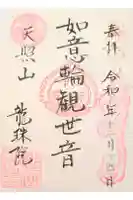 奉拝 令和 年十一月 日
如意輪観世音
天照山
龍珠院